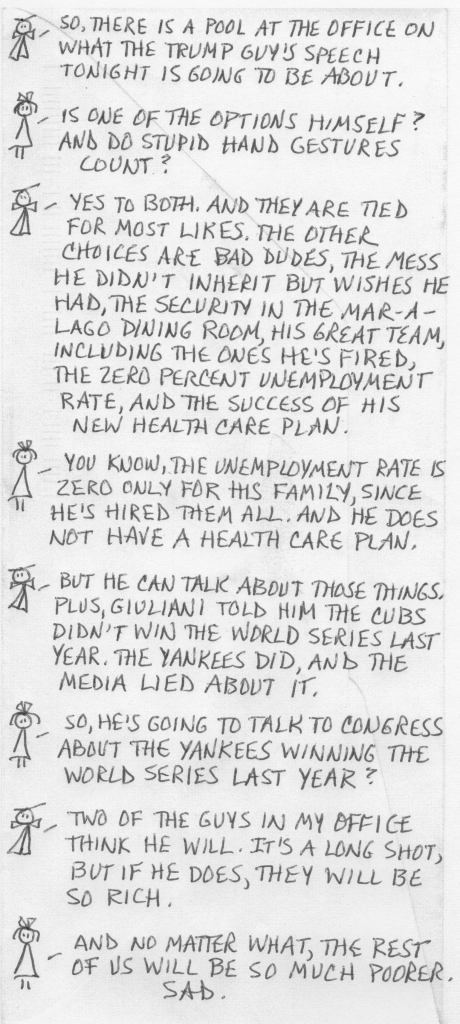 SO, THERE IS A POOL AT THE OFFICE ON
WHAT THE TRUMP GUY'S SPEECH
TONIGHT IS GOING TO BE ABOUT.
IS ONE OF THE OPTIONS HIMSELF?
AND DO STUPID HAND GESTURES
COUNT?
YES TO BOTH. AND THEY ARE TIED
FOR MOST LIKES. THE OTHER
CHOICES ARE BAD DUDES, THE MESS
HE DIDN'T INHERIT BUT WISHES HE
HAD, THE SECURITY IN THE MAR-A-
LAGO DINING ROOM, HIS GREAT TEAM,
INCLUDING THE ONES HE'S FIRED,
THE ZERO PERCENT UNEMPLOYMENT
RATE, AND THE SUCCESS OF HIS
NEW HEALTH CARE PLAN.
YOU KNOW, THE UNEMPLOYMENT RATE IS
ZERO ONLY FOR HIS FAMILY, SINCE
HE'S HIRED THEM ALL. AND HE DOES
NOT HAVE A HEALTH CARE PLAN.
BUT HE CAN TALK ABOUT THOSE THINGS.
PLUS, GIULIANI TOLD HIM THE CUBS
DIDN'T WIN THE WORLD SERIES LAST
YEAR. THE YANKEES DID, AND THE
MEDIA LIED ABOUT IT.
SO, HE'S GOING TO TALK TO CONGRESS
ABOUT THE YANKEES WINNING THE
WORLD SERIES LAST YEAR?
TWO OF THE GUYS IN MY OFFICE
THINK HE WILL. IT'S A LONG SHOT,
BUT IF HE DOES, THEY WILL BE
SO RICH.
AND NO MATTER WHAT, THE REST
OF US WILL BE SO MUCH POORER.
SAD.